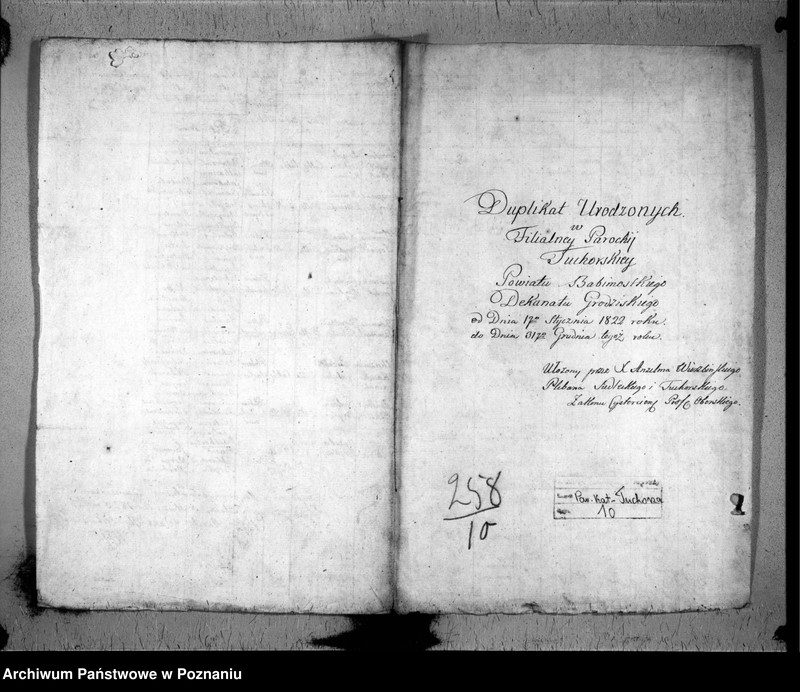 Duplikat Urodzonych.
w
Filialney Parochij
Tuchorskiey
Powiatu Babimostkiego
Dekanatu Grodziskiego
od Dnia 1go Stycznia 1822 roku.
do Dnia 31go Grudnia tegoż roku.
Ułożony przez X Anzelma
Plebana Siedleckiego i Tuchorskiego
Zakonu Prof. Oberskiego.
258
10
Par. Kat- Tuchorza
10
Archiwum Państwowe w Poznaniu